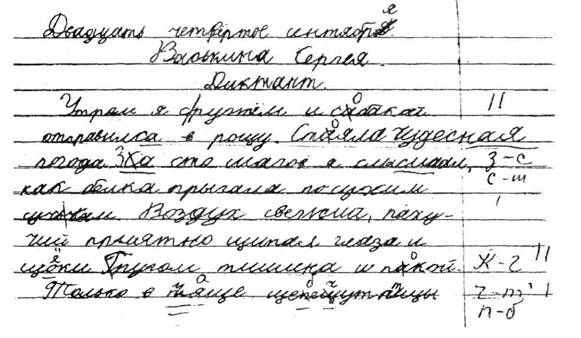 Двадцать четвёртое сентября
Васькина Сергея.
Диктант.
Утрам я с ружём и сабакай
отправился в рощу. Стаяла чудесная
погода. За сто шагов я слышал, з-с
с-ш
как белка прыгала по сухим
Воздух свежий, паху-
чий приятно щипал глаза и
щёки Кругом тишина и пакой. к-г
Только в чаще щебечут птицы ч-т
п-б